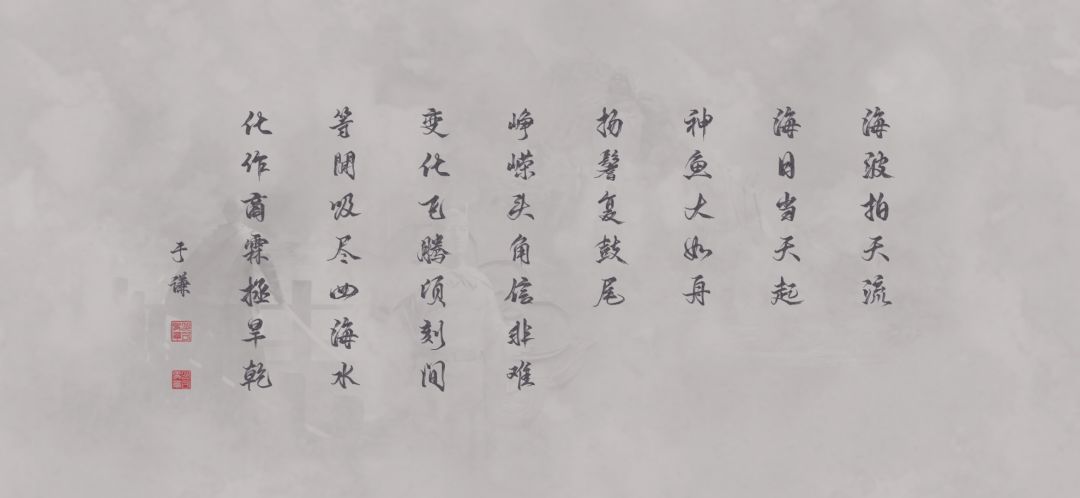 海波拍天流
海日当天起
神鱼大如舟
扬鬐复鼓尾
峥嵘头角信非难
变化飞腾顷刻间
等闲吸尽四海水
化作商霖拯旱乾
于谦